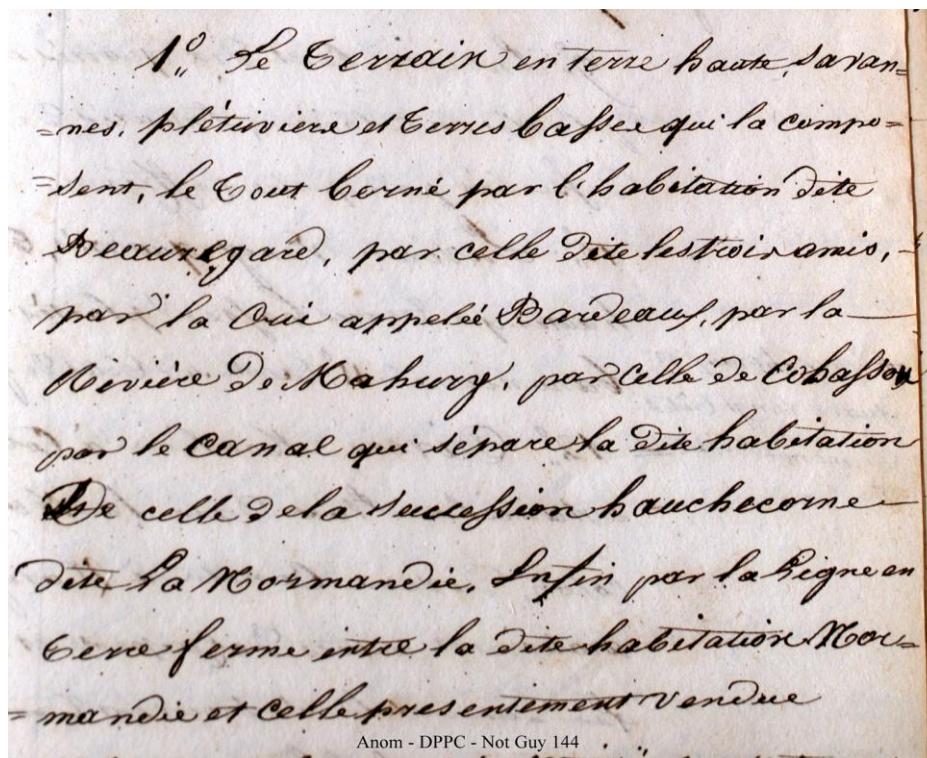 1°,, Le Terrain en terre haute, savan=
=nes, plétriviere et Terres basses qui la compo=
=sent, le Tout borné par l'habitation dite
Beauregard, par celle dite les trois amis,
par la Crique appelée Bardeaux, par la
Rivière De Mahury, par celle de Cobassou
par le canal qui sépare la dite habitation
De celle de la Succession hauchecorne
dite La Normandie, Enfin par la Ligne en
Terre ferme entre la dite habitation Nor=
=mandie et celle presentement Vendue
Anom - DPPC - Not Guy 144